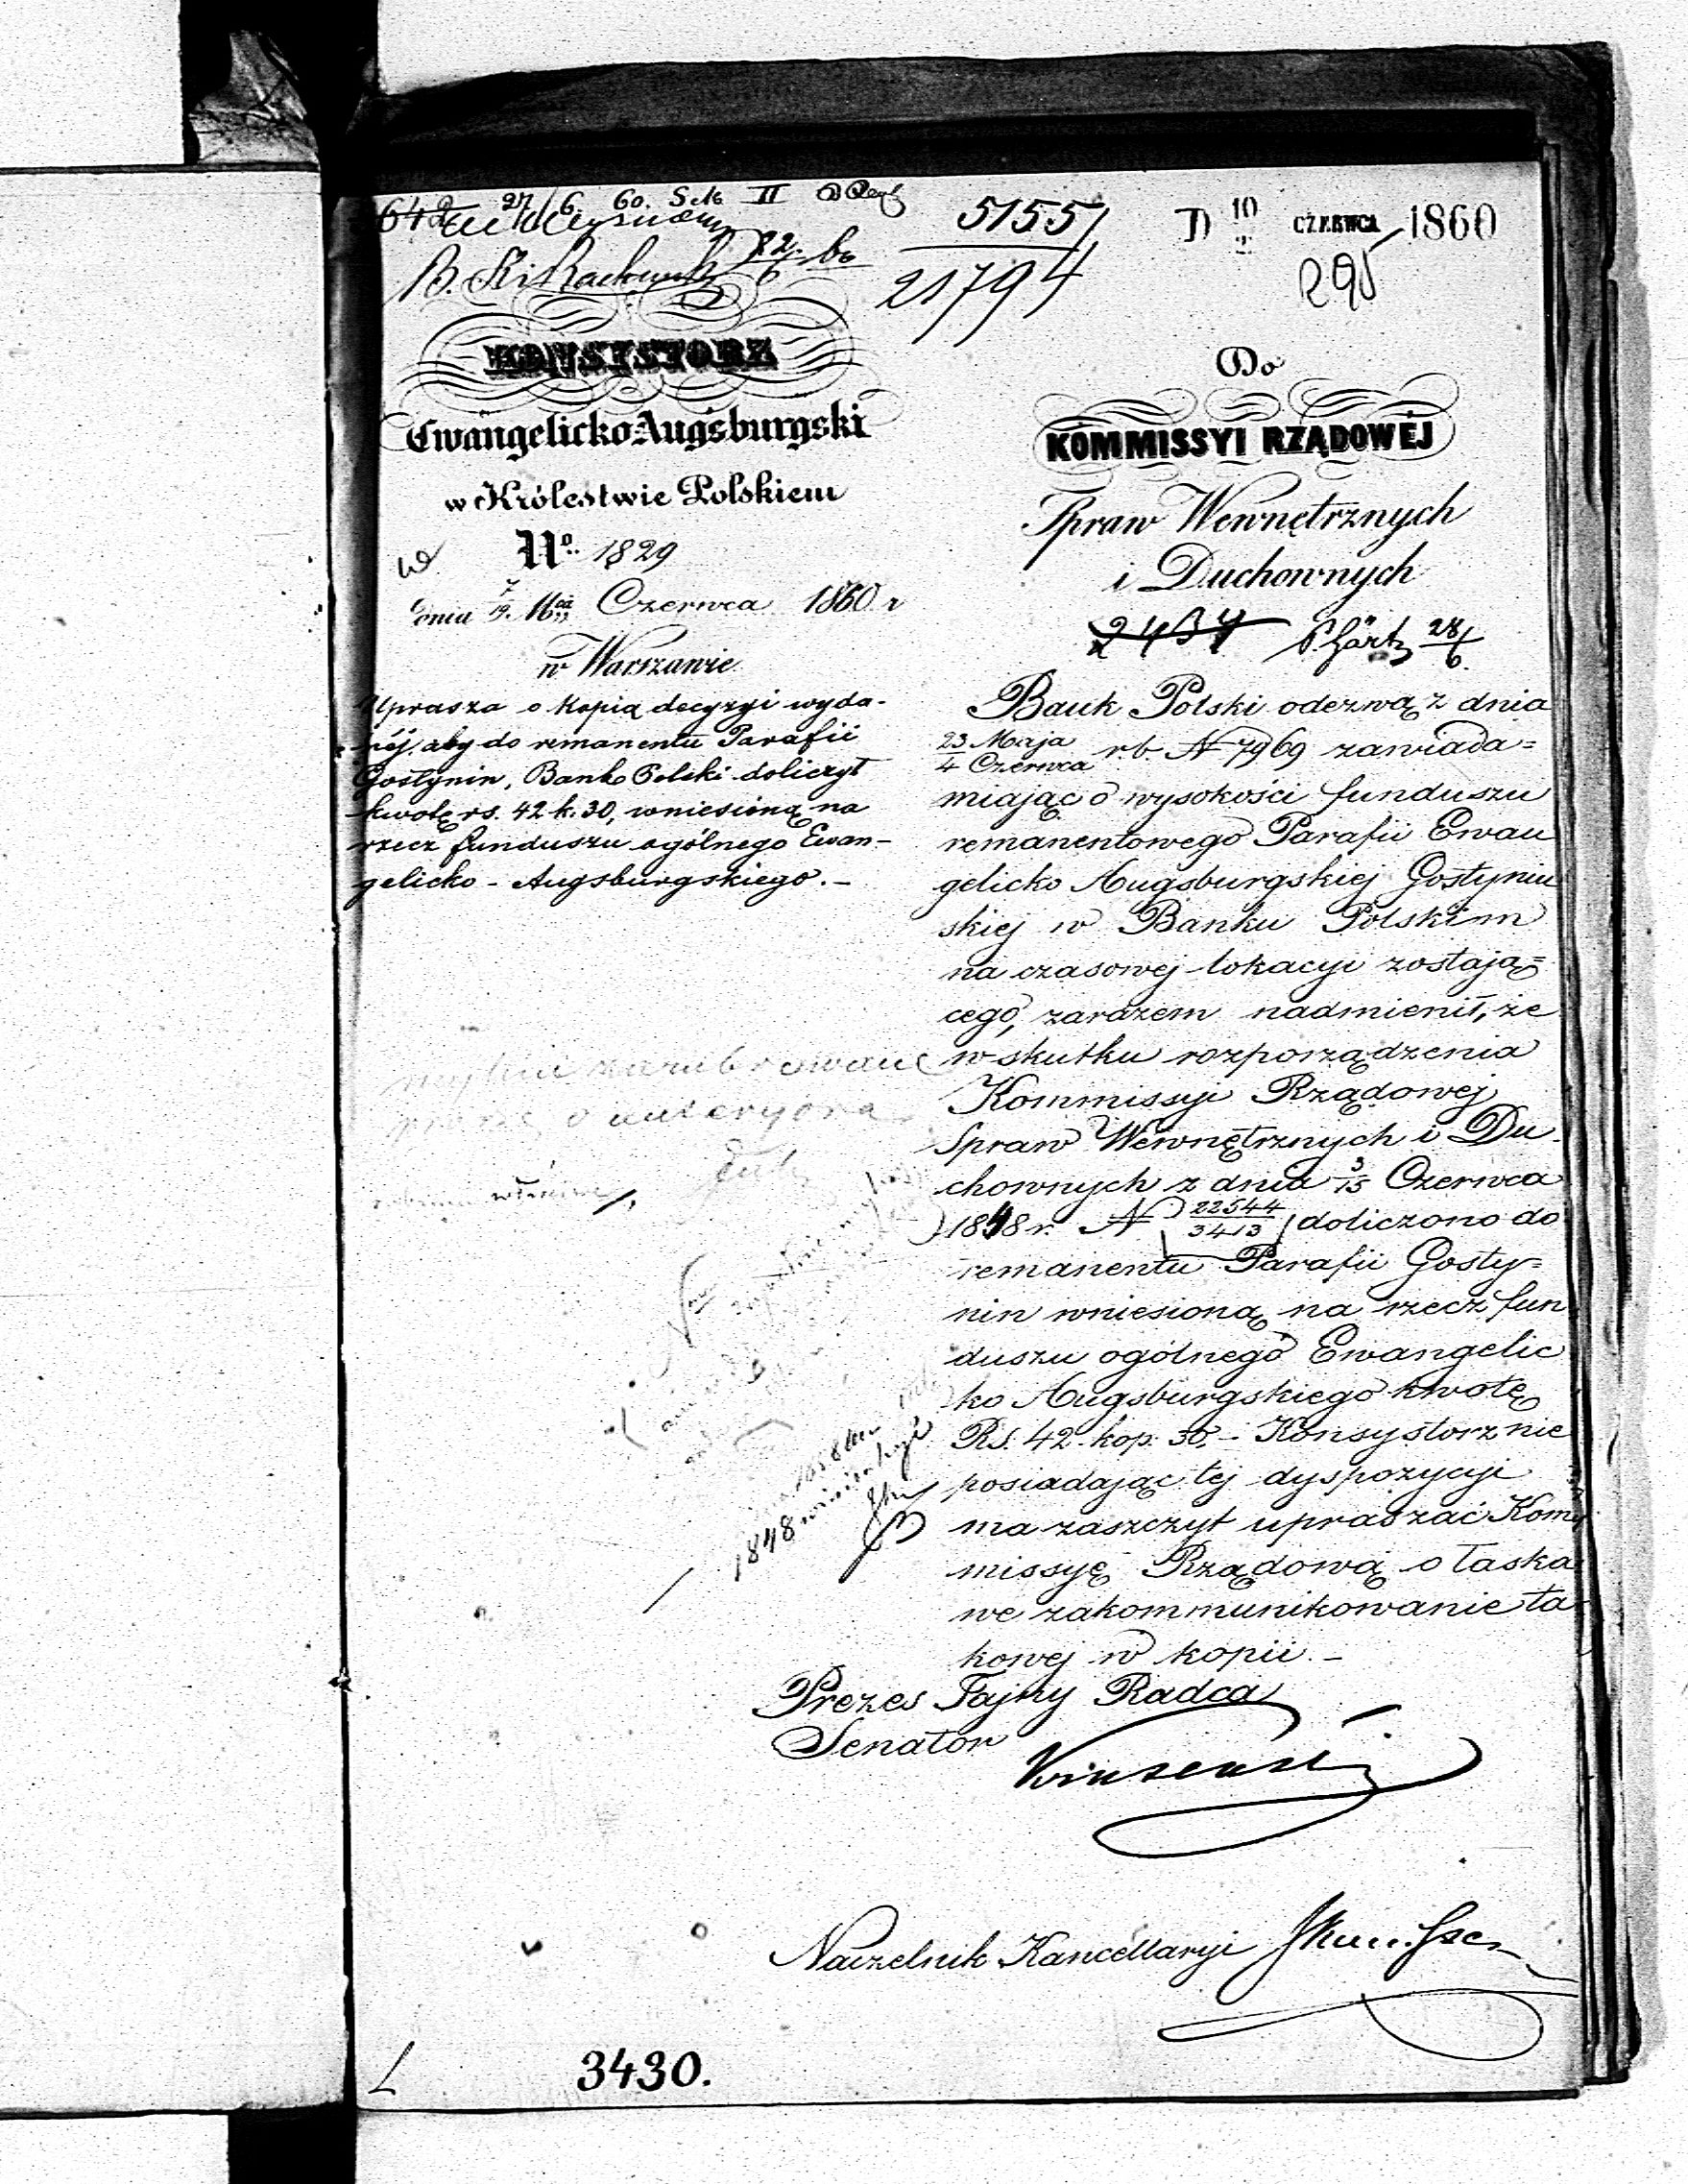 27/6 60. Sek II
5155
21794
D 10 CZERWCA 1860
295
KONSYSTORZ
Ewangelicko Augsburgski
w Królestwie Polskiem
No. 1829
dnia 7/19. Mca Czerwca 1860 r
w Warszawie
Uprasza o kopią decyzyi wyda-
néj, aby do remanentu Parafii
Gostynin, Bank Polski doliczył
kwotę rs. 42 k. 30, wniesioną na
rzecz funduszu ogólnego Ewan-
gelicko - Augsburgskiego. -
Do
KOMMISSYI RZĄDOWÉJ
Spraw Wewnętrznych
i Duchownych
2434
28/6.
Bank Polski odezwą z dnia
23 Maja / 4 Czerwca r. b. N 7969 zawiada=
miając o wysokości funduszu
remanentowego Parafii Ewan
gelicko Augsburgskiej Gostyniń
skiej w Banku Polskim
na czasowej lokacyi zostają=
cego, zarazem nadmienił, że
w skutku rozporządzenia
Kommissyi Rządowej
Spraw Wewnętrznych i Du
chownych z dnia 3/15 Czerwca
1848 r. N 22544/3413 doliczono do
remanentu Parafii Gosty=
nin wniesioną na rzecz fun
duszu ogólnego Ewangelic
ko Augsburgskiego kwotę
Rs. 42 kop. 30. - Konsystorz nie
posiadając tej dyspozycyi
ma zaszczyt upraszać Kom
missyę Rządową o łaska
we zakommunikowanie ta
kowej w kopii. -
1848
Prezes Tajny Radca
Senator
Naczelnik Kancellaryi
3430.